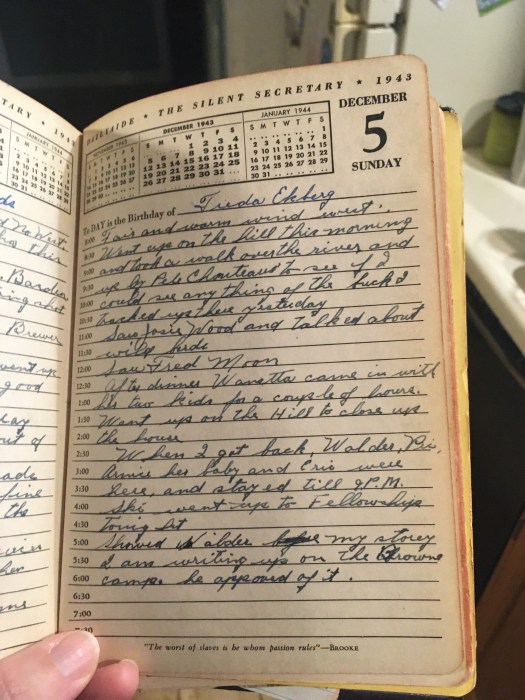 TARY ★ 194
JANUARY 1944
ADELAIDE ★ THE SILENT SECRETARY ★ 1943
NOVEMBER 1943
DECEMBER 1943
S M T W T F S
1 2 3 4
5 6 7 8 9 10 11
12 13 14 15 16 17 18
19 20 21 22 23 24 25
26 27 28 29 30 31
JANUARY 1944
S M T W T F S
1
2 3 4 5 6 7 8
9 10 11 12 13 14 15
16 17 18 19 20 21 22
23 24 25 26 27 28 29
30 31
DECEMBER
5
SUNDAY
To DAY is the Birthday of Freda Ekberg
8:00 Fair and warm wind west.
8:30 Went up on the hill this morning
9:00 and took a walk over the river and
9:30 up by Pete Chouteaus to see if I
10:00 could see any thing of the buck I
10:30 tracked up there yesterday
11:00 Saw Josie Wood and talked about
11:30 wild birds
12:00 Saw Fred Moon
12:30 After dinner Wanetta came in with
1:00 his two kids for a couple of hours.
1:30 Went up on the Hill to close up
2:00 the house
2:30 When I got back, Walder, Vic,
3:00 Annie her baby and Eric were
3:30 here, and stayed till 9 P.M.
4:00 Ekis went up to Fellowships
4:30 Tong Sit
5:00 Showed Walder my storey
5:30 I am writing up on the Browns
6:00 camp. he approved of it.
6:30
7:00
7:30
"The worst of slaves is he whom passion rules"—BROOKE